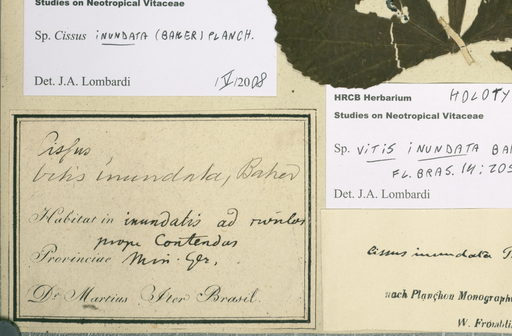 Studies on Neotropical Vitaceae
Sp. Cissus inundata (BAKER) PLANCH.
Det. J.A. Lombardi /V/2008
HRCB Herbarium HOLOTY
Studies on Neotropical Vitaceae
Sp. VITIS INUNDATA BA
FL. BRAS. 14: 205
Det. J.A. Lombardi
Cissus
Vitis inundata, Baker
Habitat in inundatis ad rivulos
prope Contendas
Provinciae Min. Ger.
Dr Martius Iter Brasil.
Cissus inundata
nach Planchon Monographi
W. Fromblin